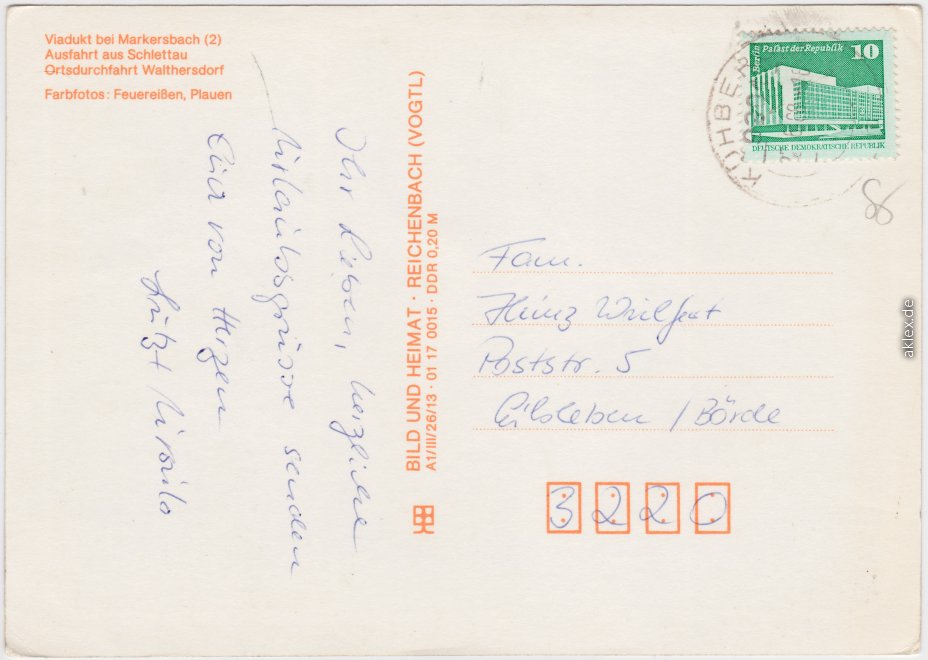 Viadukt bei Markersbach (2)
Ausfahrt aus Schlettau
Ortsdurchfahrt Walthersdorf
Farbfotos: Feuereißen, Plauen
Ihr Lieben, herzliche
Urlaubsgrüsse senden
Euch von Herzen
Lutz +
BILD UND HEIMAT · REICHENBACH (VOGTL)
A1/III/26/13 · 01 17 0015 · DDR 0,20 M
Berlin Palast der Republik 10
DEUTSCHE DEMOKRATISCHE REPUBLIK
86
Fam.
Heinz
Poststr. 5
Eilsleben / Börde
3220
aklex.de